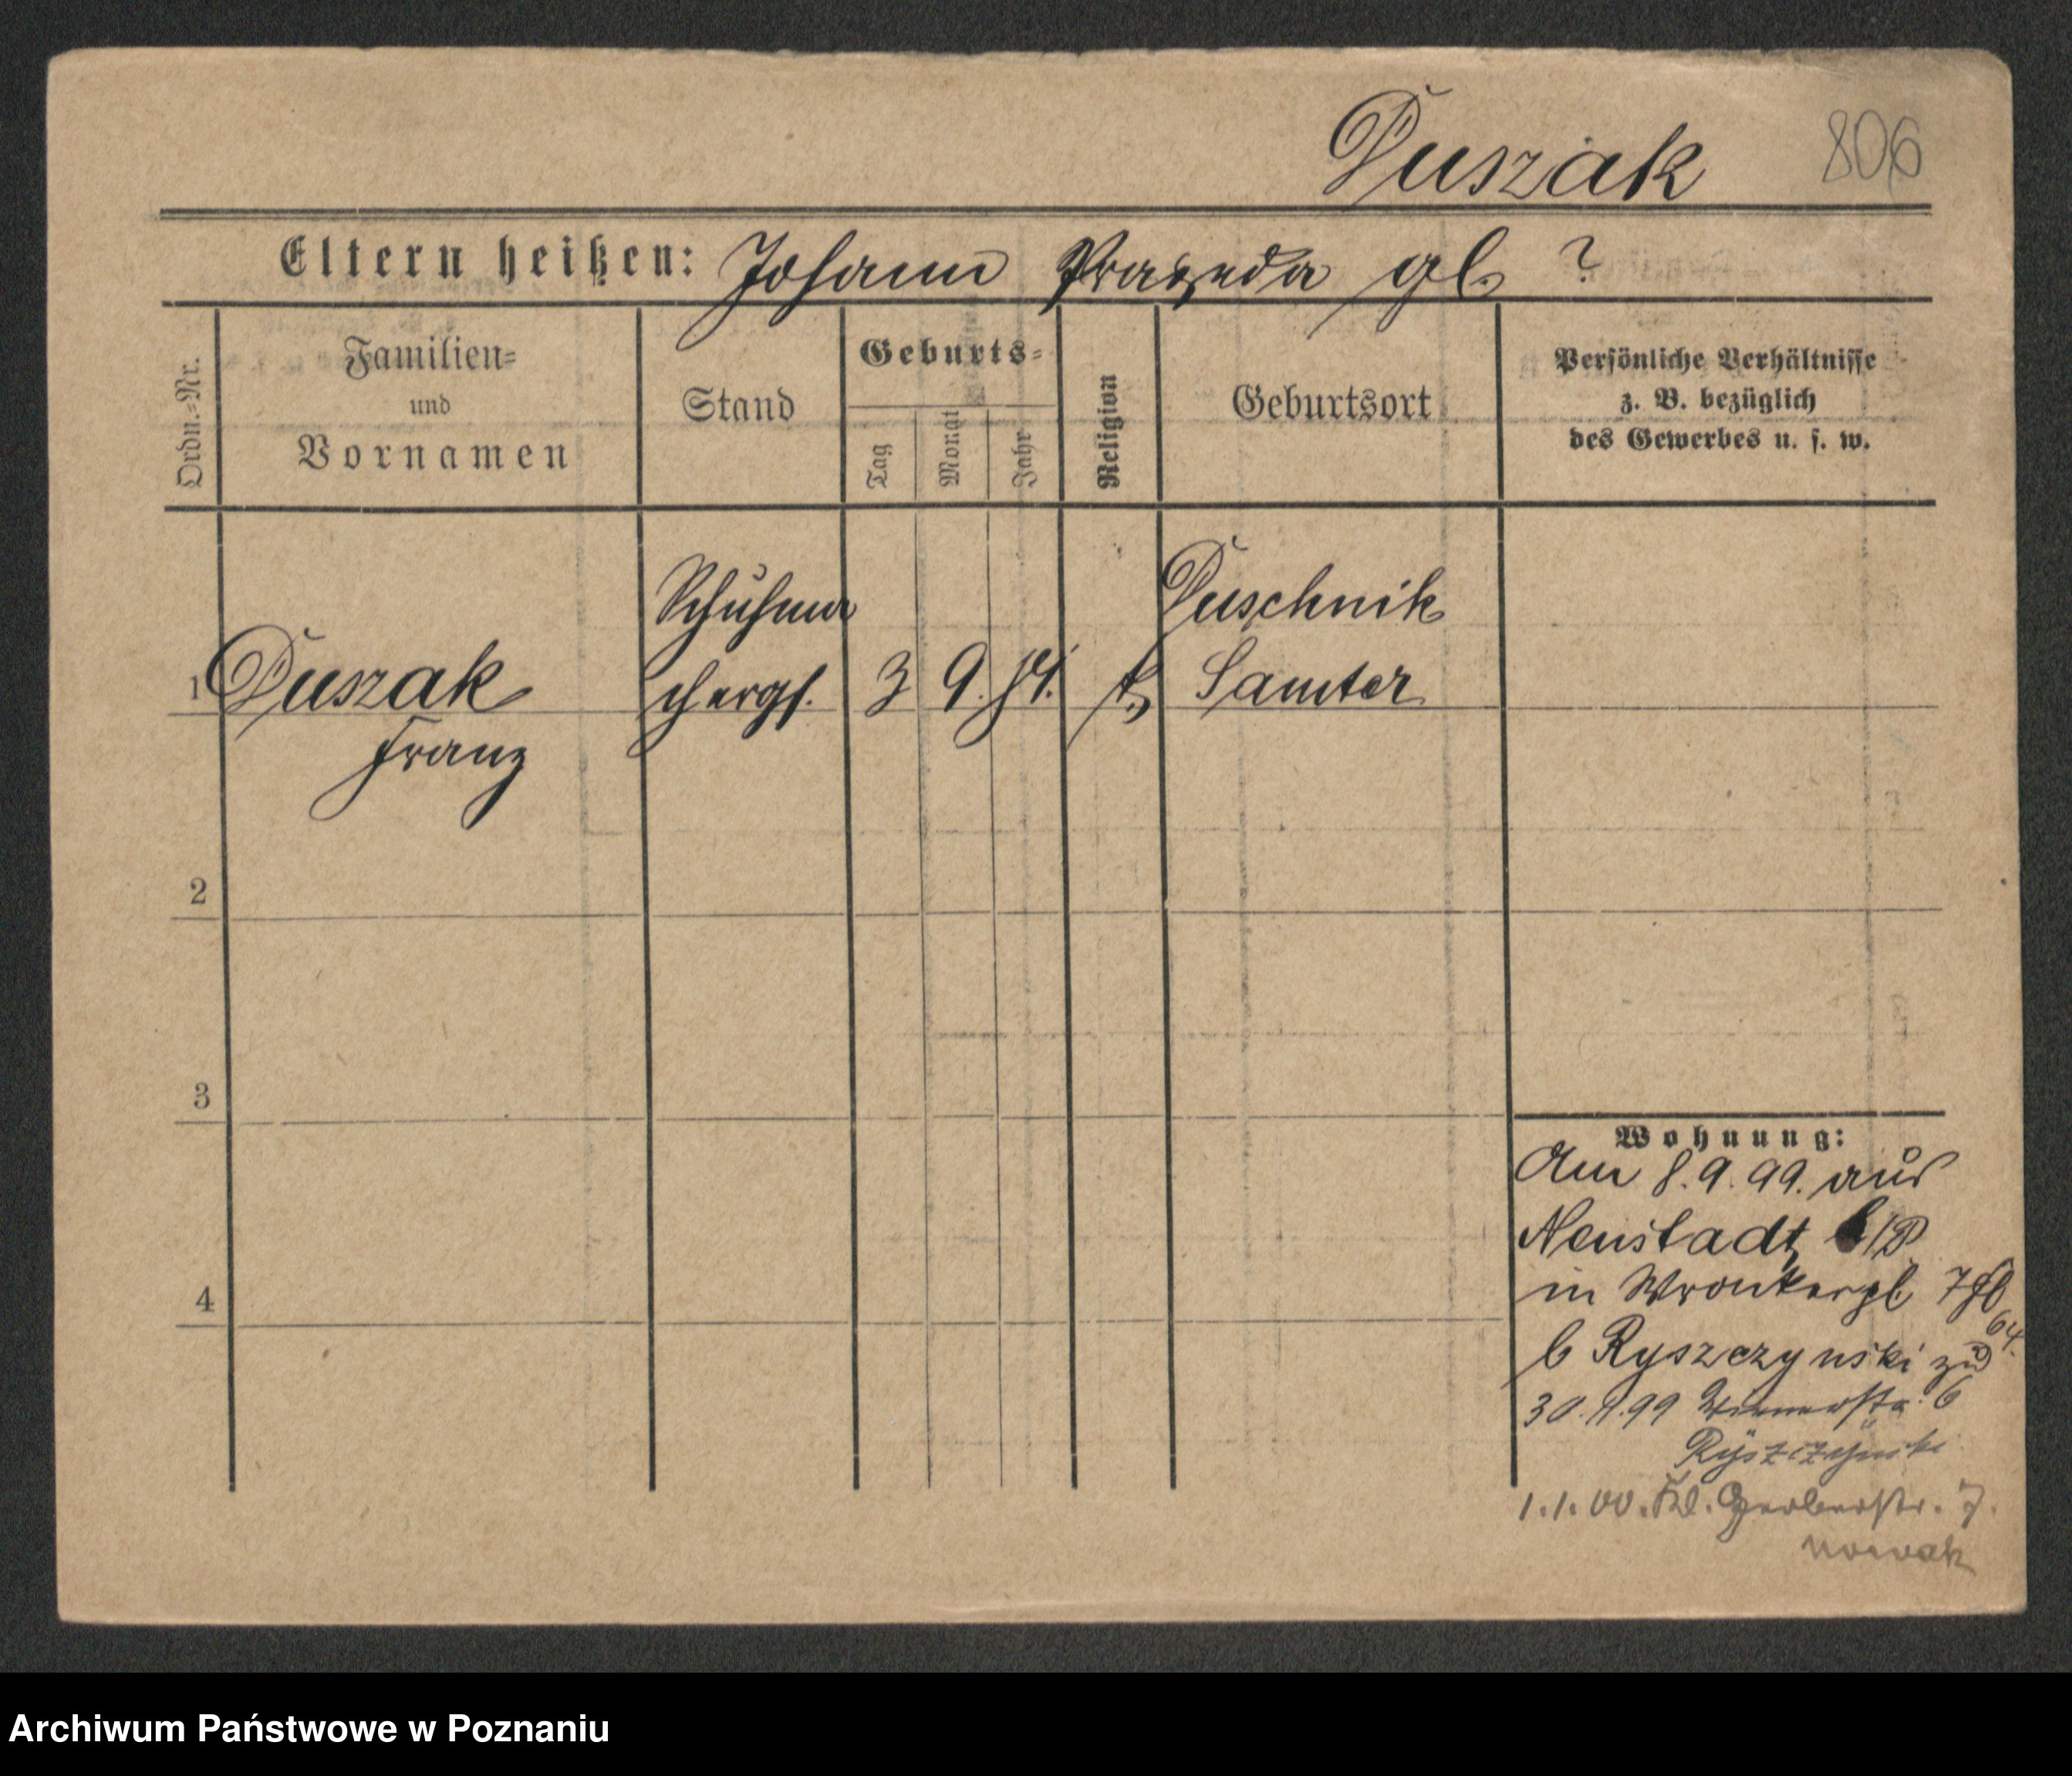 Duszak 806
Eltern heißen: Johann Praxeda gb. ?
Ordn.=Nr.
Familien=
und
Vornamen
Stand
Geburts=
Tag
Monat
Jahr
Religion
Geburtsort
Persönliche Verhältnisse
z. B. bezüglich
des Gewerbes u. s. w.
Schuhma
Duschnik
1 Duszak
chergs. 3 9. 81. k. Samter
Franz
2
3
4
Wohnung:
Am 8.9.99. aus
Neustadt b/P
in Wronkerpl
b Ryszczynski zu
30. 9. 99 Wienerstr. 6
Ryszczynski
1.1.00. Kl. Gerberstr. 7.
Nowak
Archiwum Państwowe w Poznaniu